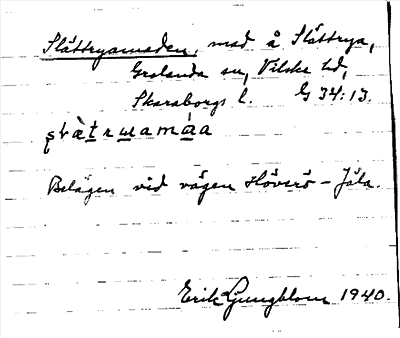 Slättryamaden, mad å Slättrya,
Grolanda sn, Vilske hd,
Skaraborgs l. G 34:13.
Belägen vid vägen Hövsrö - Jäla.
Erik Ljungblom 1940.